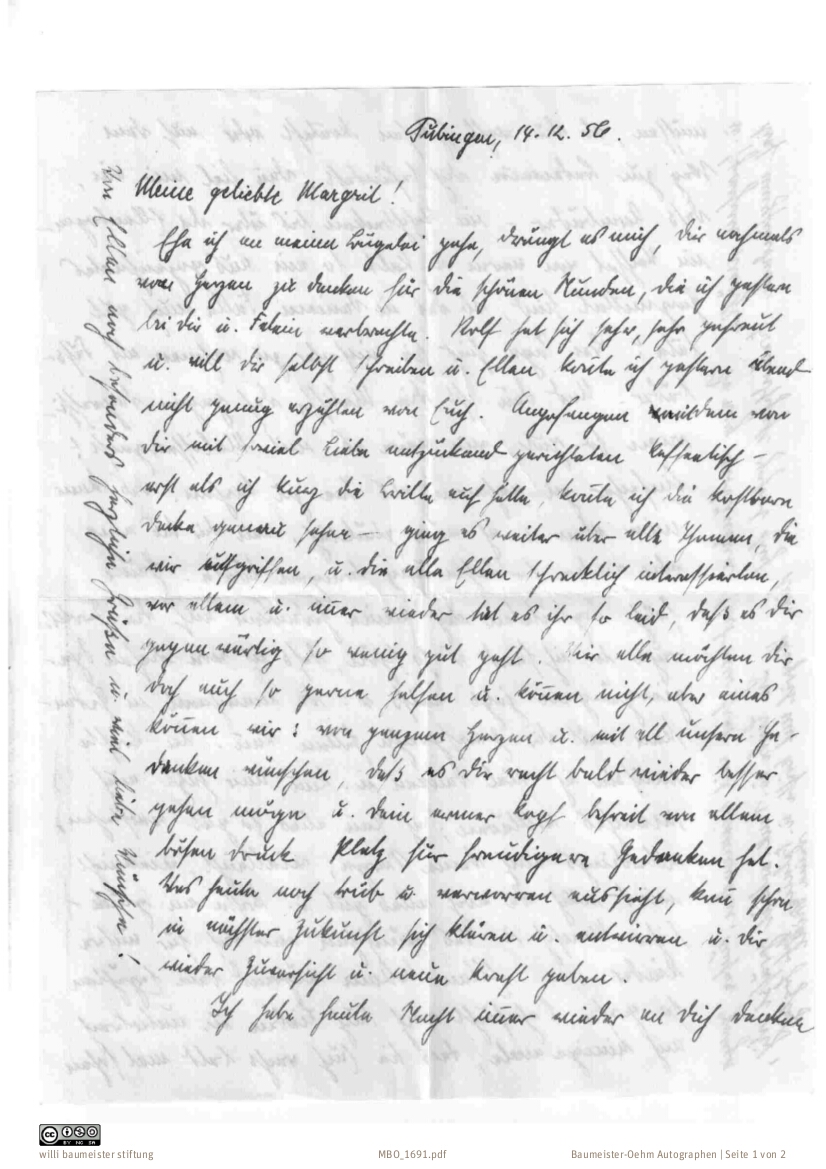 Tübingen, 14.12.56.
Meine geliebte Margrit!
Ehe ich an meine Bügelei gehe, drängt es mich, dir nochmals
von Herzen zu danken für die schönen Stunden, die ich gestern
bei dir u. Felein verbrachte. Rolf hat sich sehr, sehr gefreut
u. will dir selbst schreiben u. Ellen konnte ich gestern abend
nicht genug erzählen von Euch. Angefangen mit dem von
dir mit soviel Liebe entzückend gerichteten Kaffeetisch –
erst als ich kurz die Brille auf hatte, konnte ich die kostbare
Decke genau sehen – ging es weiter über alle Themen, die
wir aufgriffen, u. die alle Ellen schrecklich interessierten,
vor allem u. immer wieder tat es ihr so leid, daß es dir
gegenwärtig so wenig gut geht. Wir alle möchten dir
doch auch so gerne helfen u. können nicht, aber eines
können wir: von ganzem Herzen u. mit all unsern Ge-
danken wünschen, daß es dir recht bald wieder besser
gehen möge u. dein armer Kopf befreit von allem
bösen Druck Platz für freudigere Gedanken hat.
Was heute noch trüb u. verworren aussieht, kann schon
in nächster Zukunft sich klären u. entwirren u. dir
wieder Zuversicht u. neue Kraft geben.
Ich habe heute Nacht immer wieder an dich denken
Von Ellen noch besonders herzliche Grüße u. viel liebe Wünsche!
cc
BY NC SA
willi baumeister stiftung
MBO_1691.pdf
Baumeister-Oehm Autographen | Seite 1 von 2